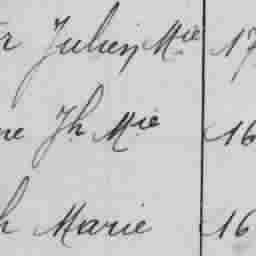 r Julien Mie 17
ne Jh Mie 16
h Marie 16